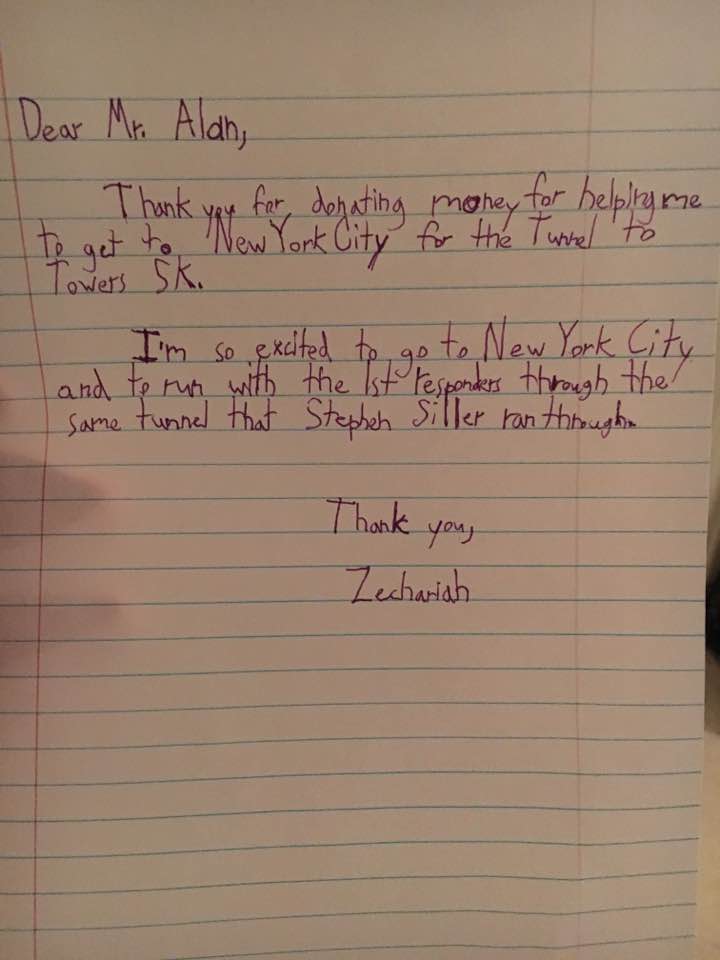 Dear Mr. Alan,
Thank you for donating money for helping me
to get to New York City for the Tunnel to
Towers 5K.
I'm so excited to go to New York City
and to run with the 1st responders through the
same tunnel that Stephen Siller ran through.
Thank you,
Zechariah